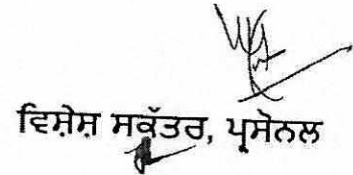 ਵਿਸ਼ੇਸ਼ ਸਕੱਤਰ, ਪ੍ਰਸੋਨਲ